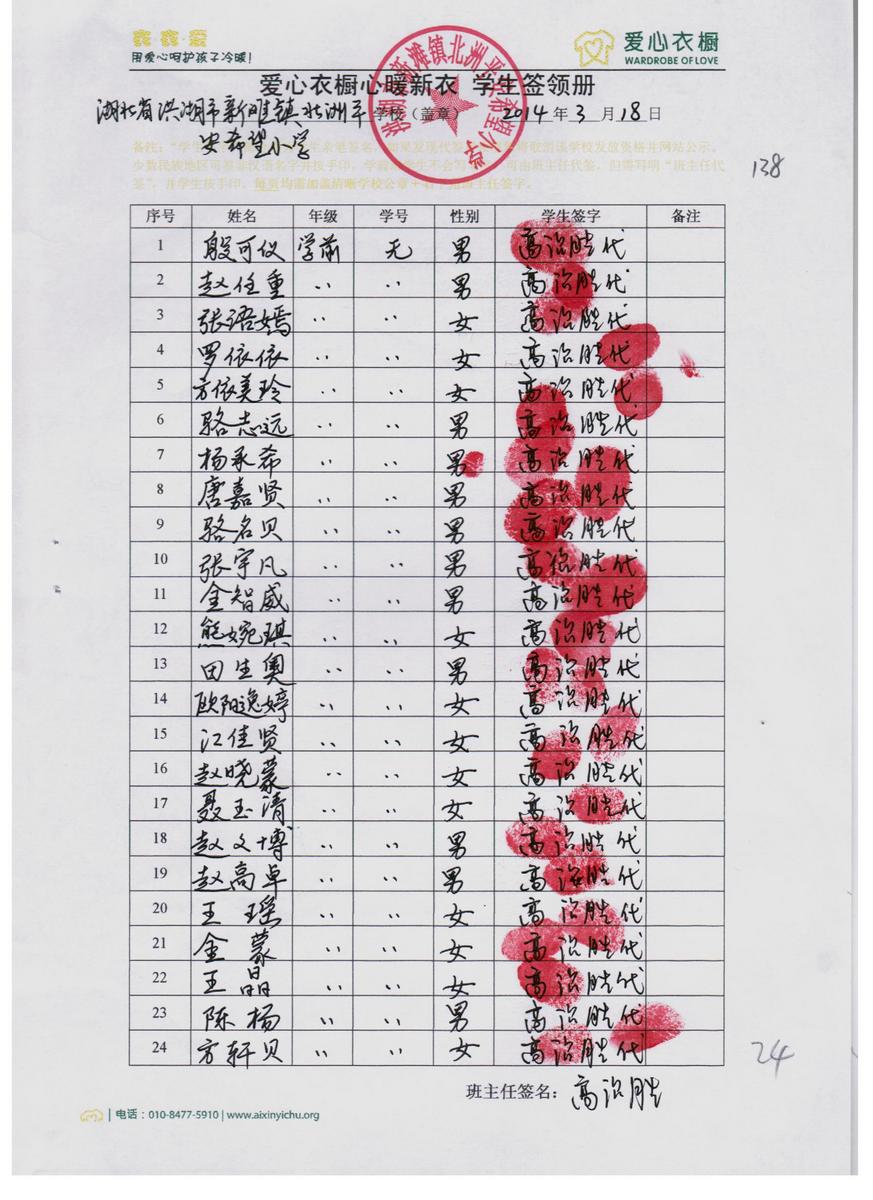 鑫·鑫·爱
用爱心呵护孩子冷暖!
爱心衣橱
WARDROBE OF LOVE
爱心衣橱心暖新衣 学生签领册
湖北省洪湖市新滩镇北洲平 学校（盖章） 2014年3月18日
安希望小学
138
序号 姓名 年级 学号 性别 学生签字 备注
1 殷可仪 学前 无 男 高治胜代
2 赵任重 〃 〃 男 高治胜代
3 张语嫣 〃 〃 女 高治胜代
4 罗依依 〃 〃 女 高治胜代
5 方依美玲 〃 〃 女 高治胜代
6 骆志远 〃 〃 男 高治胜代
7 杨承希 〃 〃 男 高治胜代
8 唐嘉贤 〃 〃 男 高治胜代
9 骆名贝 〃 〃 男 高治胜代
10 张宇凡 〃 〃 男 高治胜代
11 金智威 〃 〃 男 高治胜代
12 熊婉琪 〃 〃 女 高治胜代
13 田生奥 〃 〃 男 高治胜代
14 欧阳逸婷 〃 〃 女 高治胜代
15 江佳贤 〃 〃 女 高治胜代
16 赵晓蒙 〃 〃 女 高治胜代
17 聂玉清 〃 〃 女 高治胜代
18 赵文博 〃 〃 男 高治胜代
19 赵高卓 〃 〃 男 高治胜代
20 王瑶 〃 〃 女 高治胜代
21 金蒙 〃 〃 女 高治胜代
22 王晶 〃 〃 女 高治胜代
23 陈杨 〃 〃 男 高治胜代
24 方轩贝 〃 〃 女 高治胜代
24
班主任签名：高治胜
电话：010-8477-5910 | www.aixinyichu.org